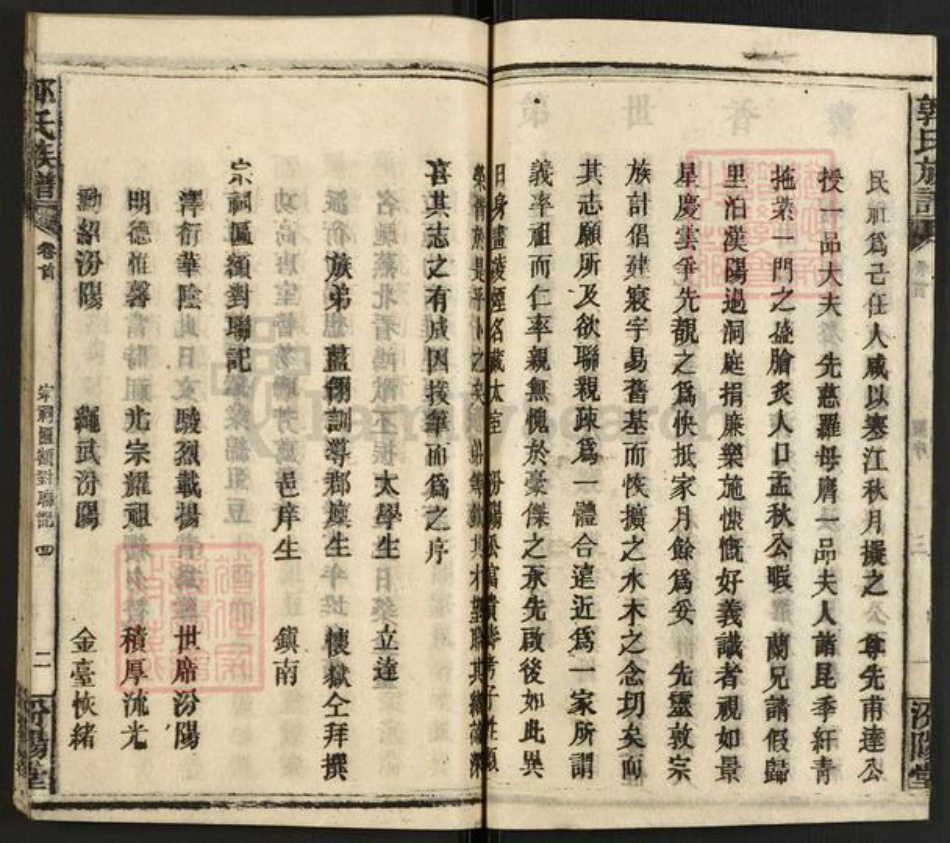 郭氏族譜
卷首
三
汾陽堂
民社爲己任人咸以寒江秋月擬之 尊先甫達公
授一品大夫 先慈羅母膺一品夫人諸昆季紆青
拖紫一門之盛膾炙人口孟秋公暇 蘭兄請假歸
里泊漢陽過洞庭捐廉樂施慷慨好義識者視如景
星慶雲爭先覩之爲快抵家月餘爲妥 先靈敦宗
族計倡建寢宇易舊基而恢擴之水木之念切矣而
其志願所及欲聯親疎爲一體合遠近爲一家所謂
義率祖而仁率親無愧於豪傑之承先啟後如此異
日身畫凌煙名藏太室 汾陽公富貴壽考子姓
喜其志之有成因援筆而爲之序
太學生 立達
族弟 藎翎訓導郡廩生 懷獄仝拜撰
邑庠生 鎮南
宗祠匾額對聯記
澤衍華陰 駿烈載揚 世席汾陽
明德惟馨 光宗耀祖 積厚流光
勳紹汾陽 繩武汾陽 金臺恢緒
郭氏族譜
卷首
宗祠匾額對聯記
四
二
汾陽堂
FamilySearch